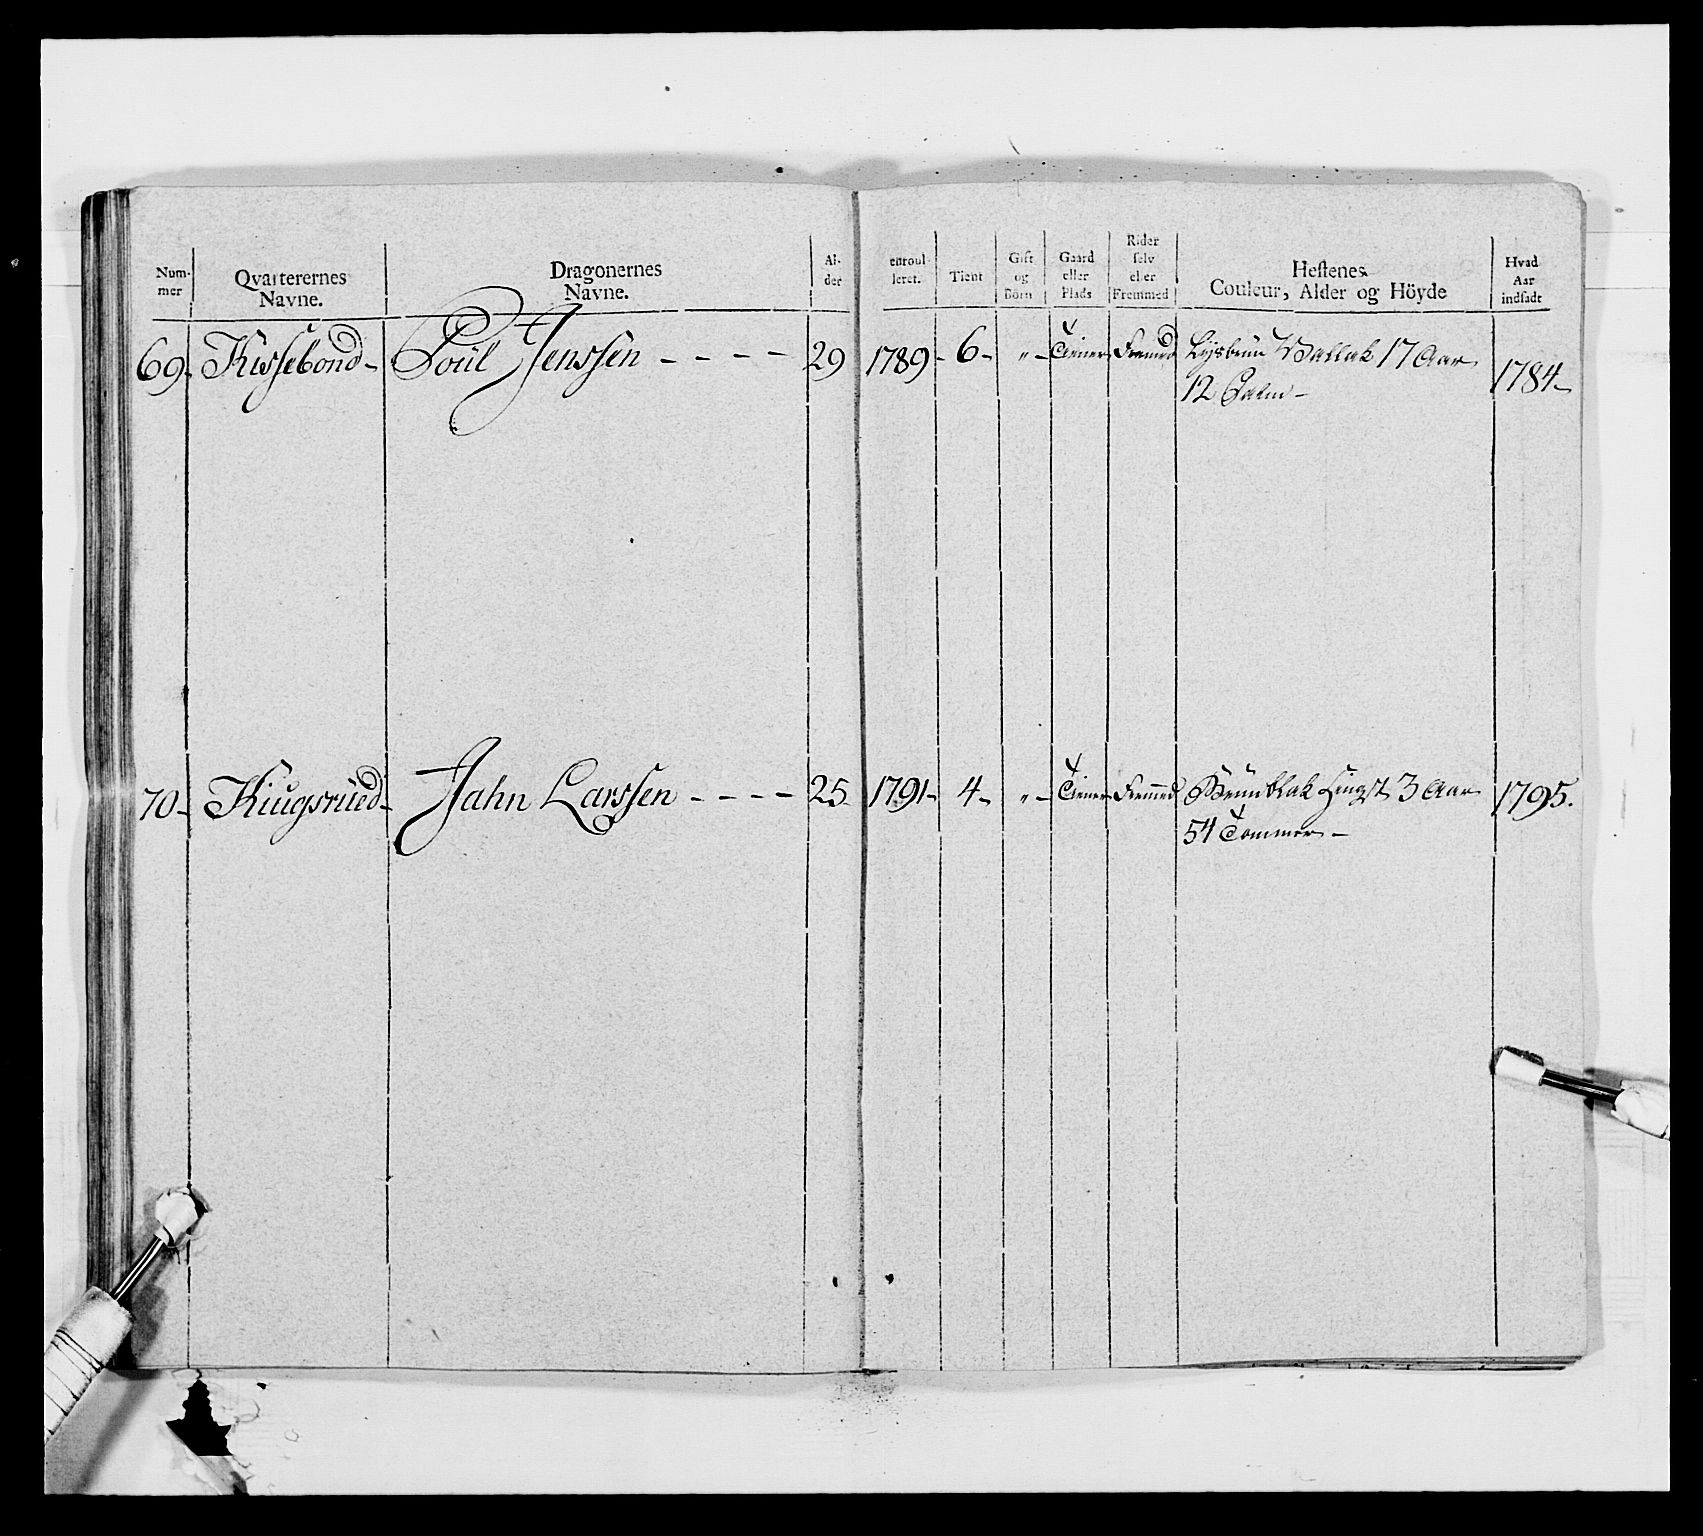 Num-
mer
Qvarterernes
Navne.
Dragonernes
Navne.
Al-
der
enroul-
leret.
Tient
Gift
og
Börn
Gaard
eller
Plads
Rider
selv
eller
Fremmed
Hestenes
Couleur, Alder og Höyde
Hvad
Aar
indsadt
69- Kissebond- Poul Jenssen - - - - 29 1789- 6- „- Tiener Fremed Lysbrun Vallak 17 Aar 1784-
12 Palm-
70- Kiugsrued- Jahn Larssen - - - - 25 1791- 4- „- Tiener Fremmed Brunblak Hingst 3 Aar 1795.
54 Tommer-